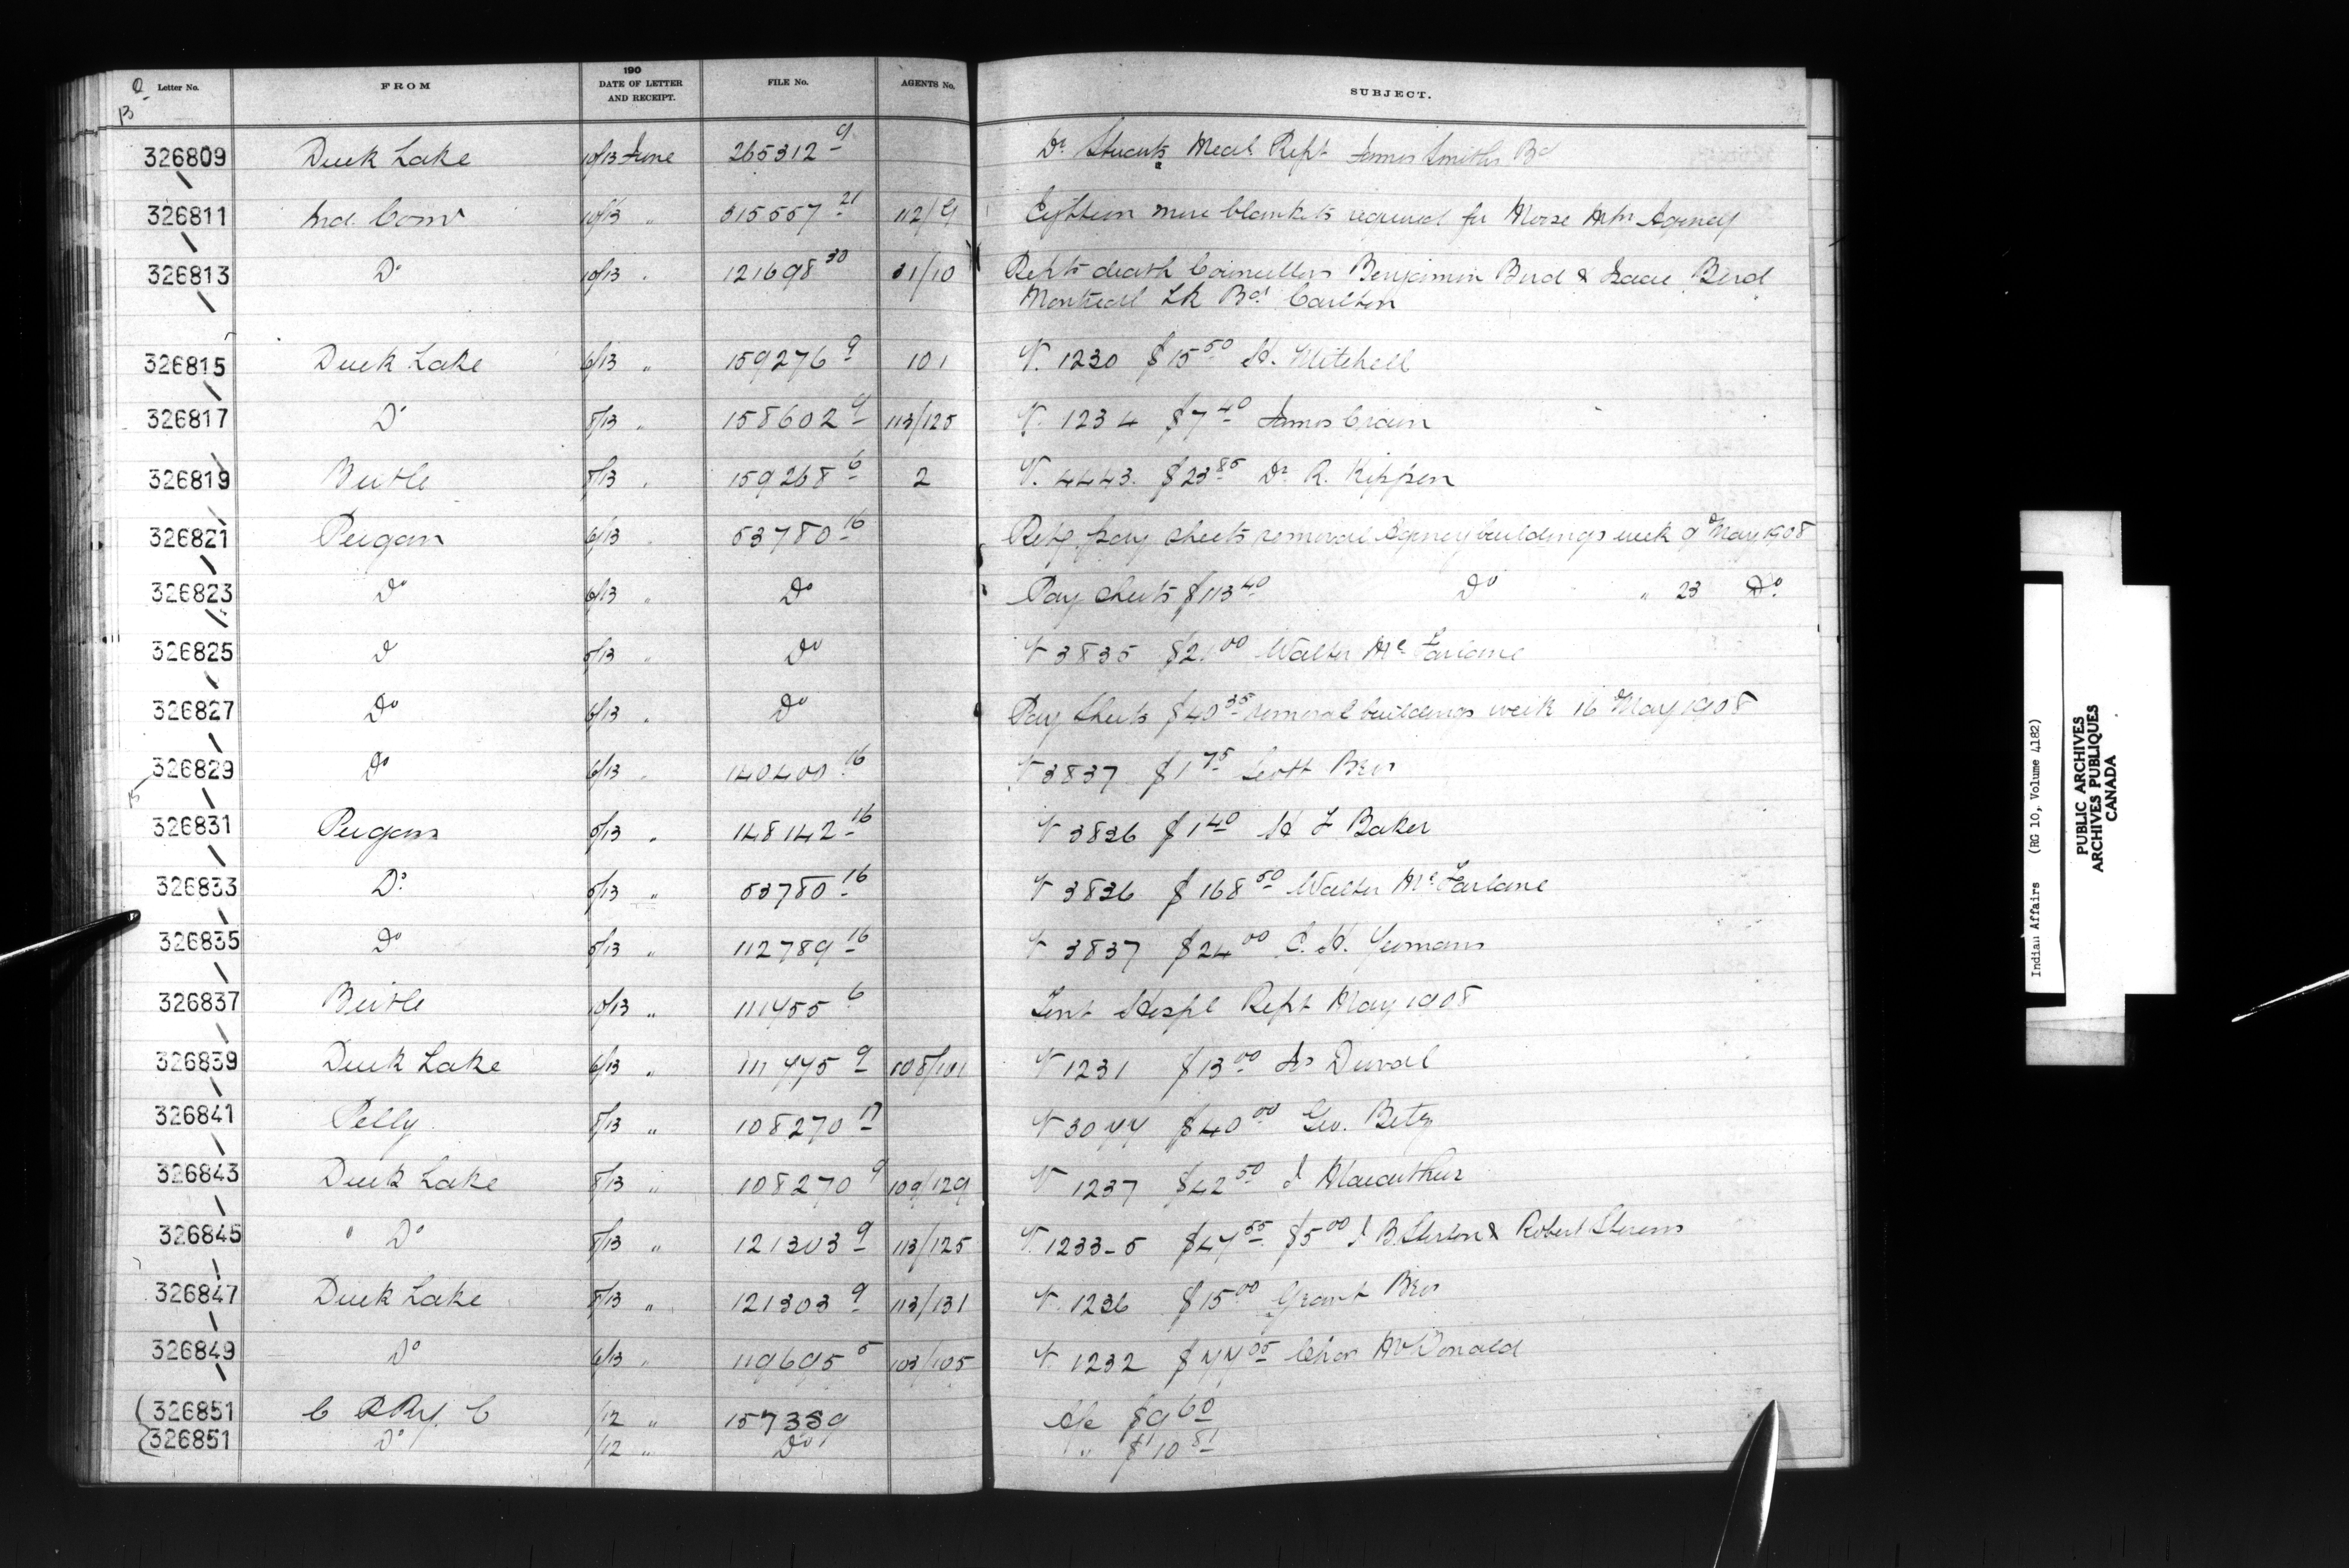 Letter No. FROM 190 DATE OF LETTER AND RECEIPT. FILE No. AGENTS No. SUBJECT.
326809 Duck Lake 10/13 June 265312 9 Dr Stuarts Medl Rept James Smiths Bd
326811 Ind. Comr 10/13 " 315557 21 112/9 Eighteen more blankets required for Moose Mtn Agency
326813 Do 10/13 " 121698 30 31/10 Repts death Councillors Benjamin Bird & Isaac Bird
Montreal Lk Bd Carlton
326815 Duck Lake 6/13 " 159276 9 101 V. 1230 $15 50 H. Mitchell
326817 Do 8/13 " 158602 9 113/125 V. 1234 $7 40 James Crain
326819 Birtle 8/13 " 159268 6 2 V. 4443. $23 85 Dr R. Kippen
326821 Peigan 6/13 " 53780 16 Retg pay sheets removal Agency buildings week 9 May 1908
326823 Do 6/13 " Do Pay sheets $113 40 Do " 23 Do
326825 Do 5/13 " Do V 3835 $2. 00 Walter McFarlane
326827 Do 6/13 " Do Pay Sheets $40 35 removal buildings week 16 May 1908
326829 Do 6/13 " 140400 16 V 3837 $1 75 Scott Bros
326831 Peigan 5/13 " 148142 16 V 3836 $1 40 H F Baker
326833 Do 5/13 " 53780 16 V 3836 $168 50 Walter McFarlane
326835 Do 5/13 " 112789 16 V 3837 $24 00 C. H. Yeomans
326837 Birtle 10/13 " 111455 6 Tent Hospl Rept May 1908
326839 Duck Lake 6/13 " 111445 9 108/101 V 1231 $13 00 Duval
326841 Pelly 8/13 " 108270 17 V 3044 $40 00 Geo. Betz
326843 Duck Lake 8/13 " 108270 9 109/129 V 1237 $42 50 J Macarthur
326845 " Do 8/13 " 121303 9 113/125 V. 1233-5 $47 55 $5 00 J B & Robert
326847 Duck Lake 8/13 " 121303 9 113/131 V. 1236 $15 00 Grant Bros
326849 Do 6/13 " 119695 5 103/105 V 1232 $44 05 Chas McDonald
326851 C P Ry. C /12 " 157339 A/c $9 60
326851 Do /12 " Do " $10 81
Indian Affairs (RG 10, Volume 4182)
PUBLIC ARCHIVES
ARCHIVES PUBLIQUES
CANADA